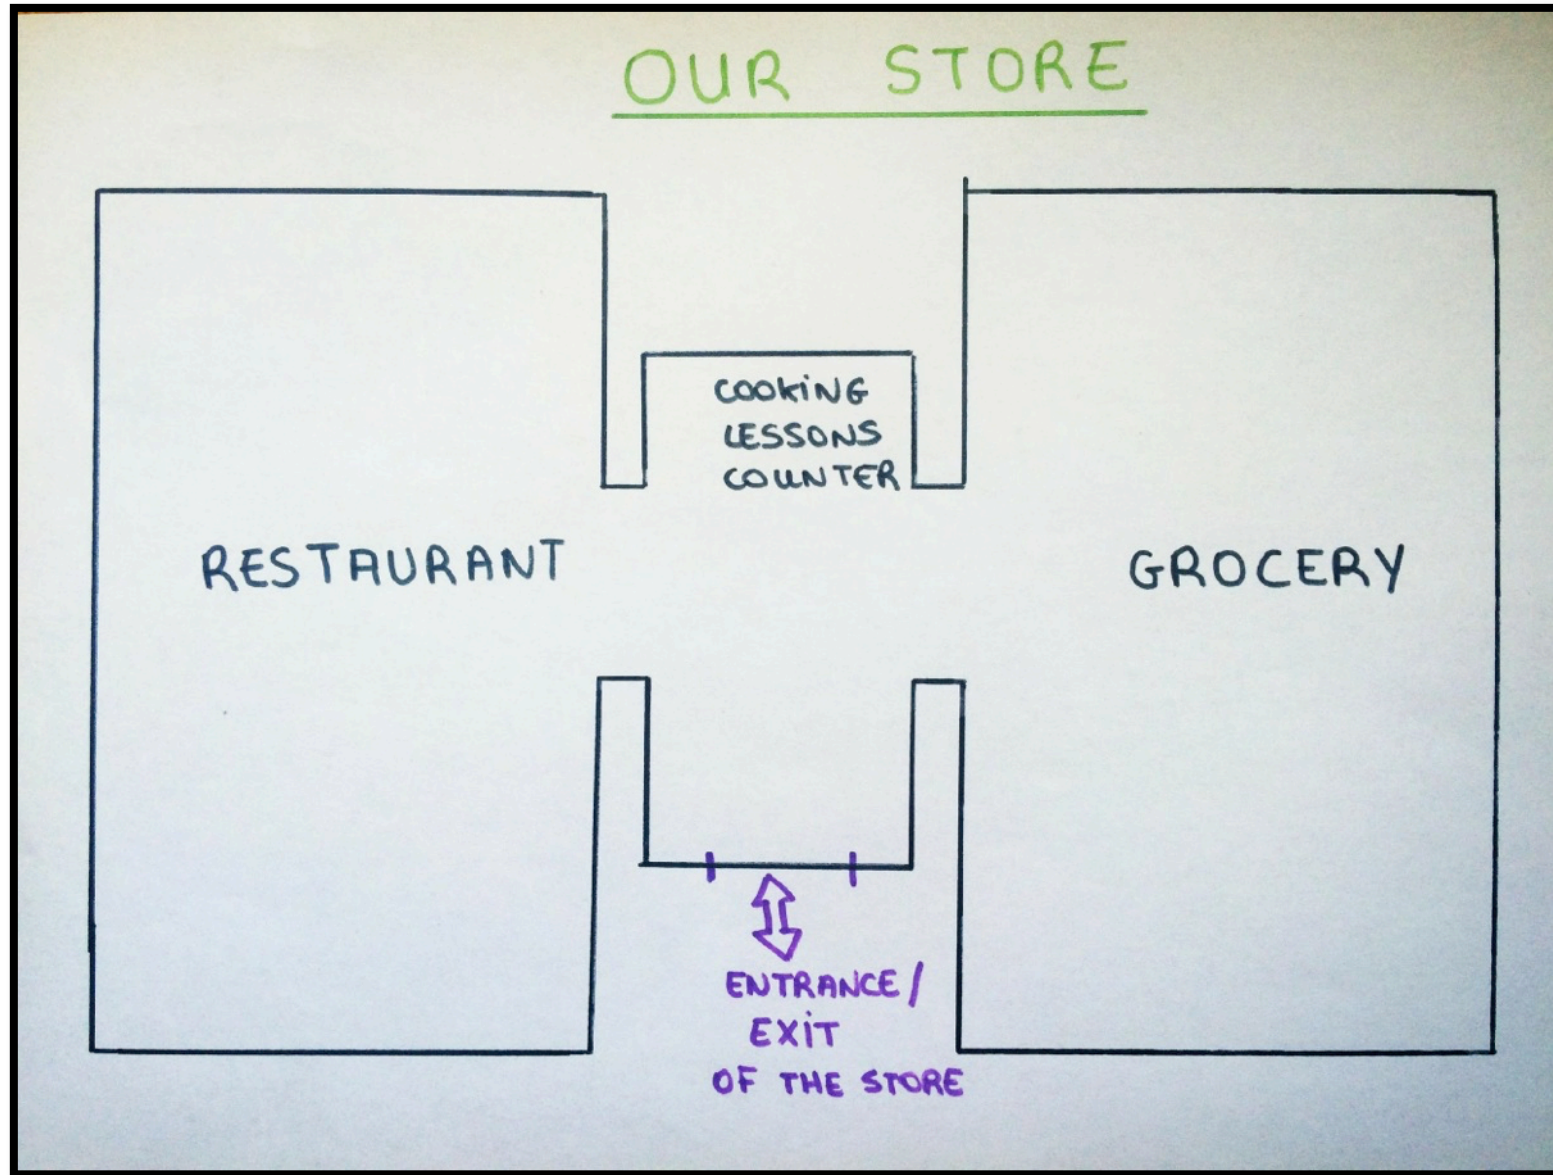 OUR STORE
COOKING
LESSONS
COUNTER
RESTAURANT
GROCERY
ENTRANCE/
EXIT
OF THE STORE